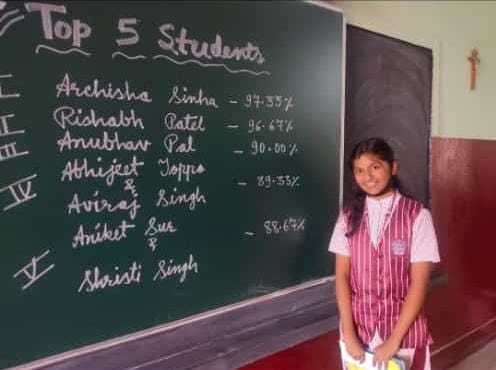 Top 5 Students
I Archisha Sinha - 97.33%
II Rishabh Patel - 96.67%
III Anubhav Pal - 90.00%
IV Abhijeet Toppo
&
Aviraj Singh - 89.33%
Aniket Sur
&
V Shristi Singh - 88.67%